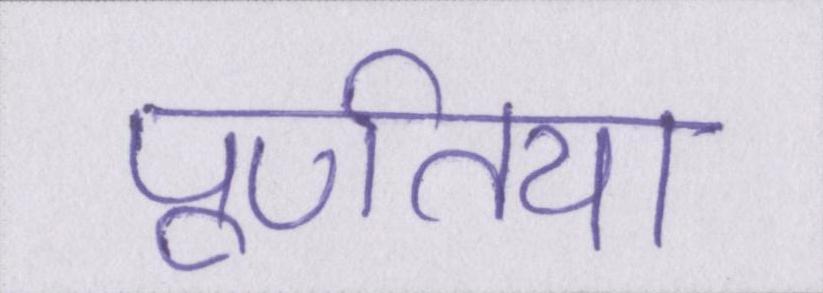 पूर्णतया